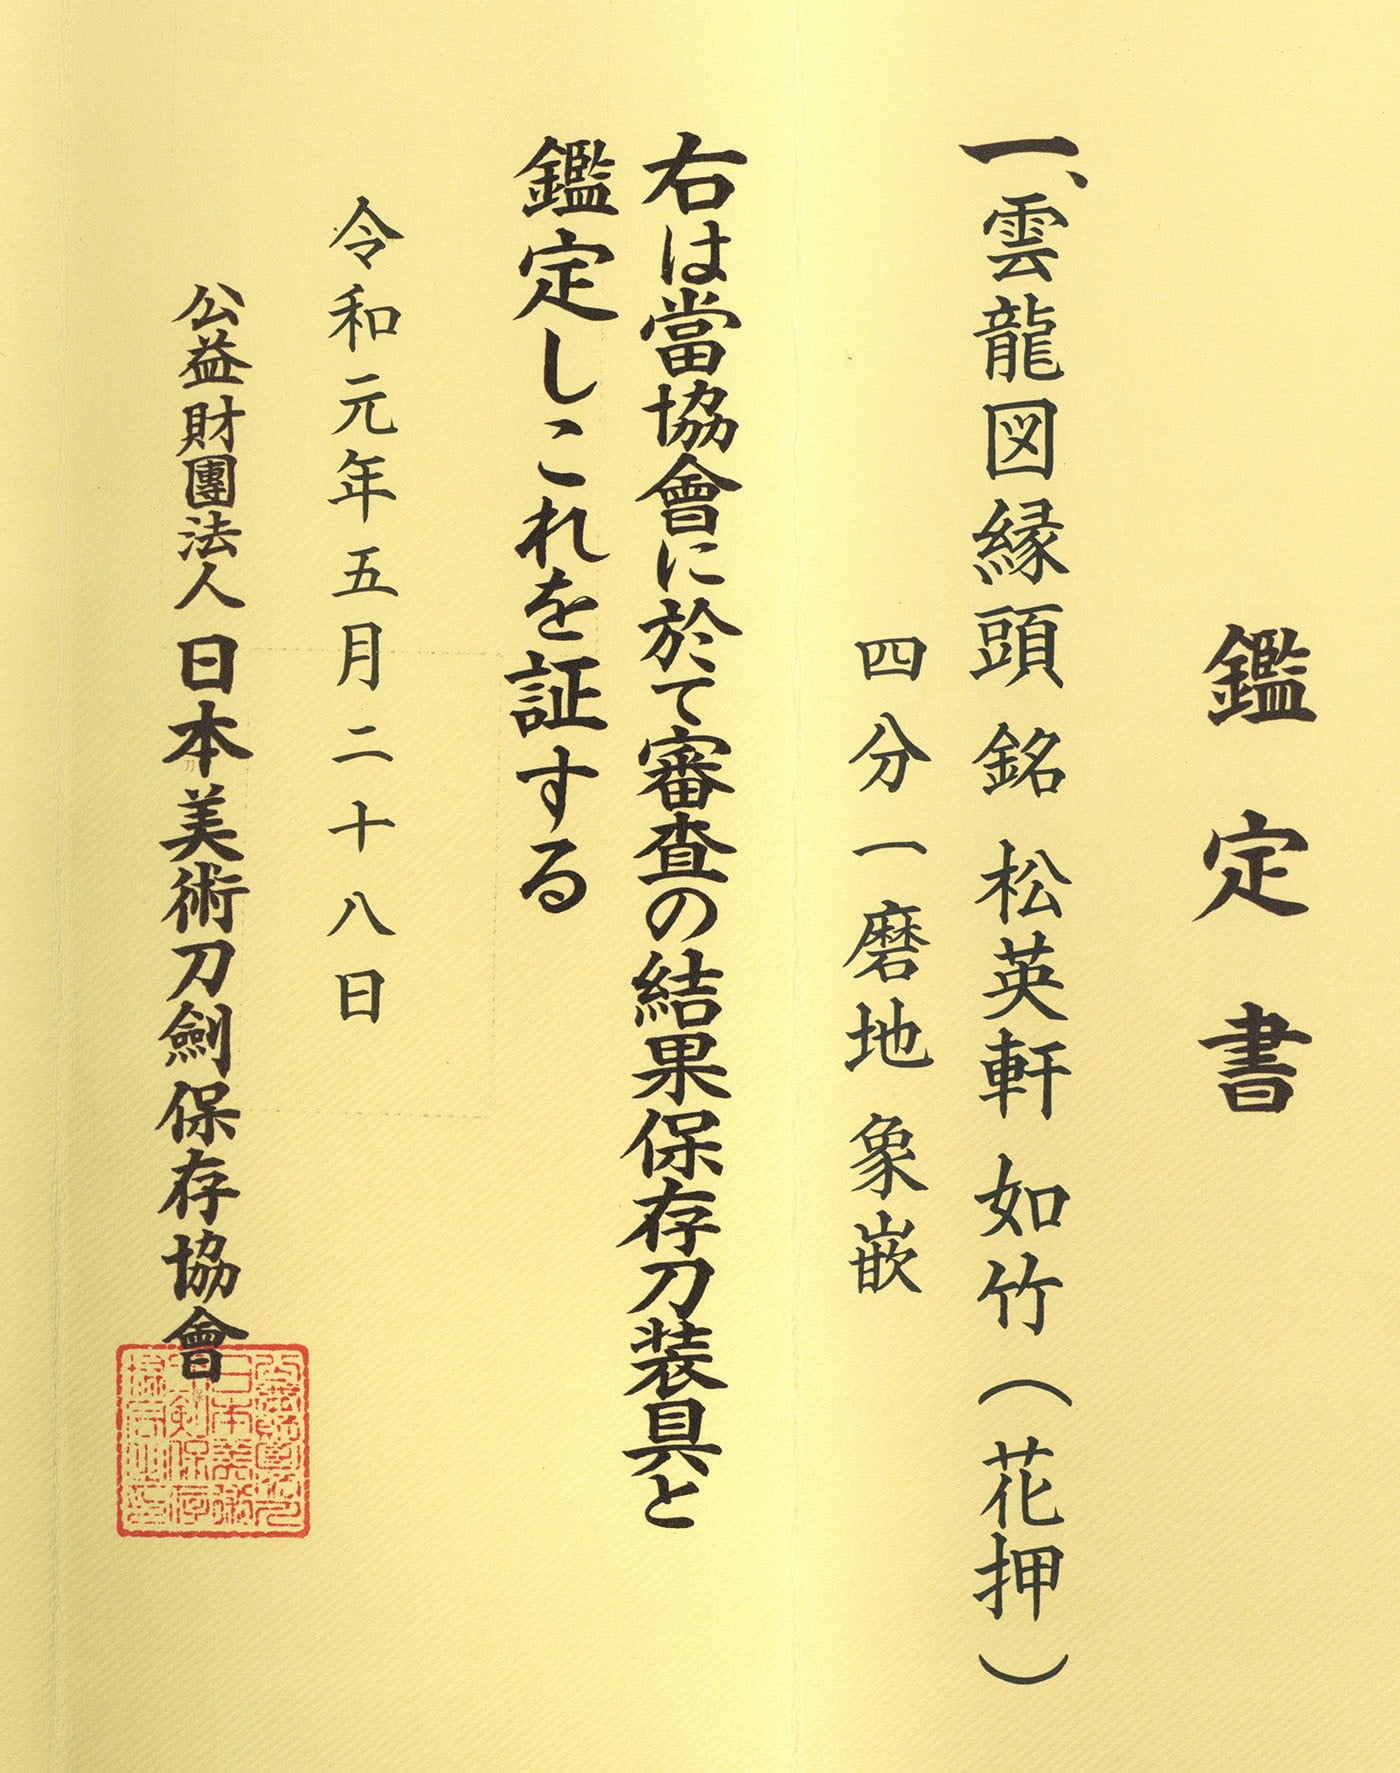 鑑定書
一、雲龍図縁頭 銘 松英軒 如竹（花押）
四分一磨地 象嵌
右は當協會に於て審査の結果保存刀装具と
鑑定しこれを証する
令和元年五月二十八日
公益財團法人 日本美術刀劍保存協會